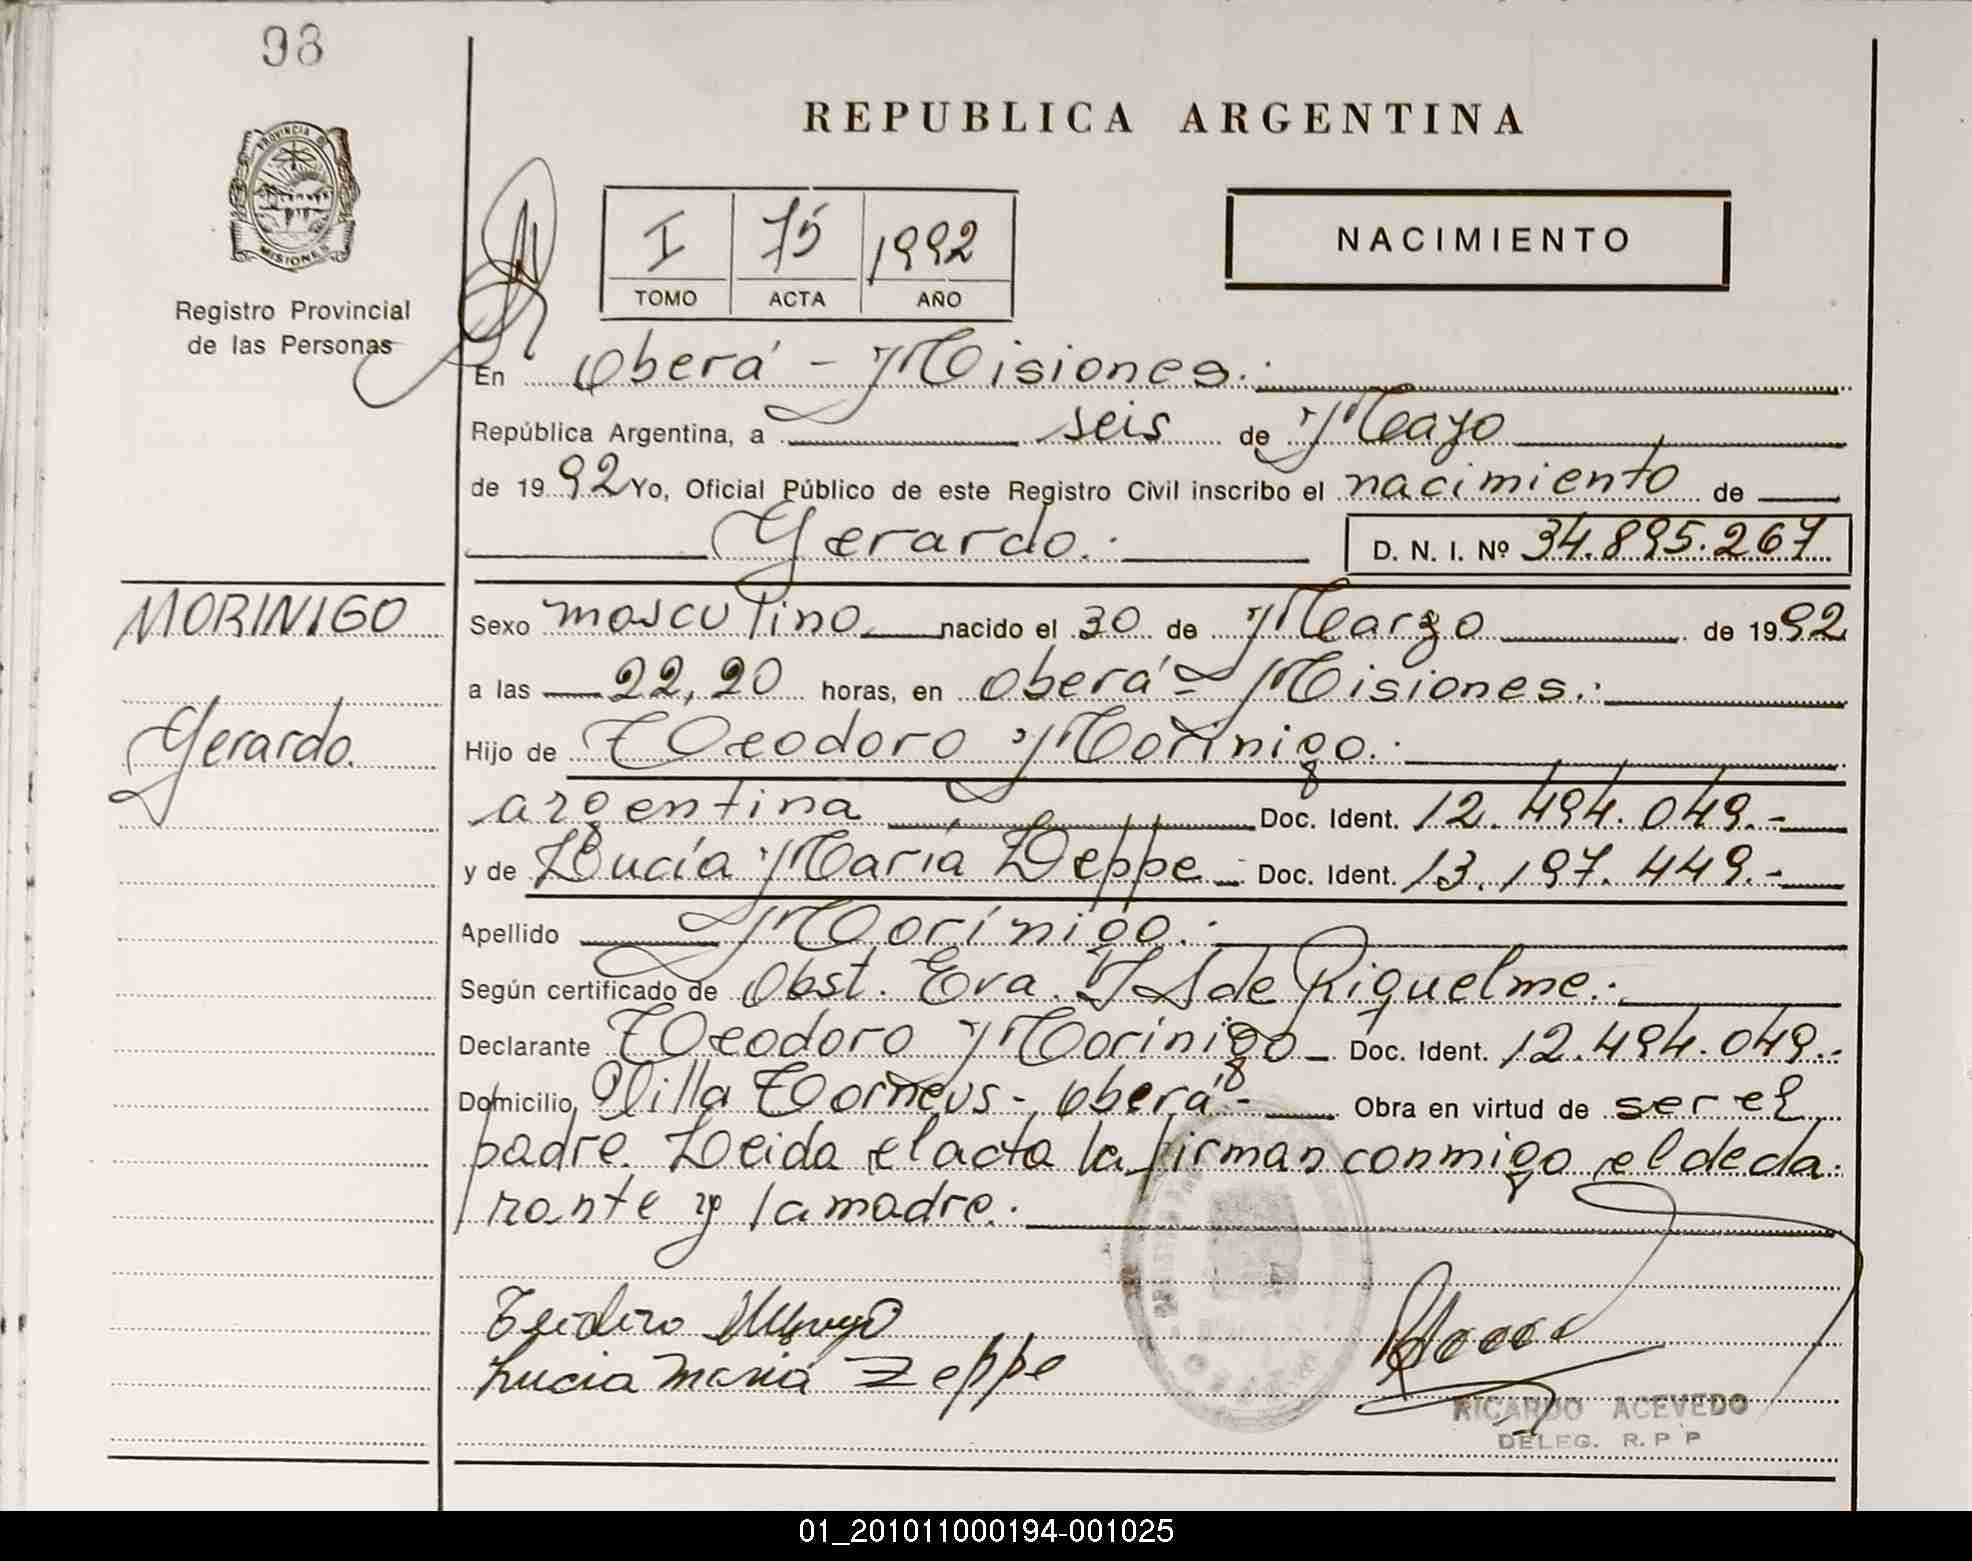 98
PROVINCIA DE
MISIONES
Registro Provincial
de las Personas
REPUBLICA ARGENTINA
I 75 1992
TOMO ACTA AÑO
NACIMIENTO
En Oberá - Misiones.
República Argentina, a seis de Mayo
de 1992 Yo, Oficial Público de este Registro Civil inscribo el nacimiento de
Gerardo. D. N. I. Nº 34.895.267
MORINIGO
Gerardo.
Sexo masculino nacido el 30 de Marzo de 1992
a las 22,20 horas, en Oberá - Misiones.
Hijo de Teodoro Morínigo.
argentina Doc. Ident. 12.494.049.-
y de Lucía María Zeppe - Doc. Ident. 13.197.449.-
Apellido Morínigo.
Según certificado de Obst. Eva de Riquelme.
Declarante Teodoro Morínigo - Doc. Ident. 12.494.049.-
Domicilio Villa Torneus - Oberá - Obra en virtud de ser el
padre. Leida el acta la firman conmigo el decla
rante y la madre.
Lucia Maria Zeppe
RICARDO ACEVEDO
DELEG. R. P P
01_201011000194-001025